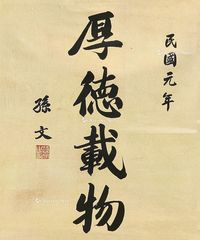 民國元年
厚德載物
孫文